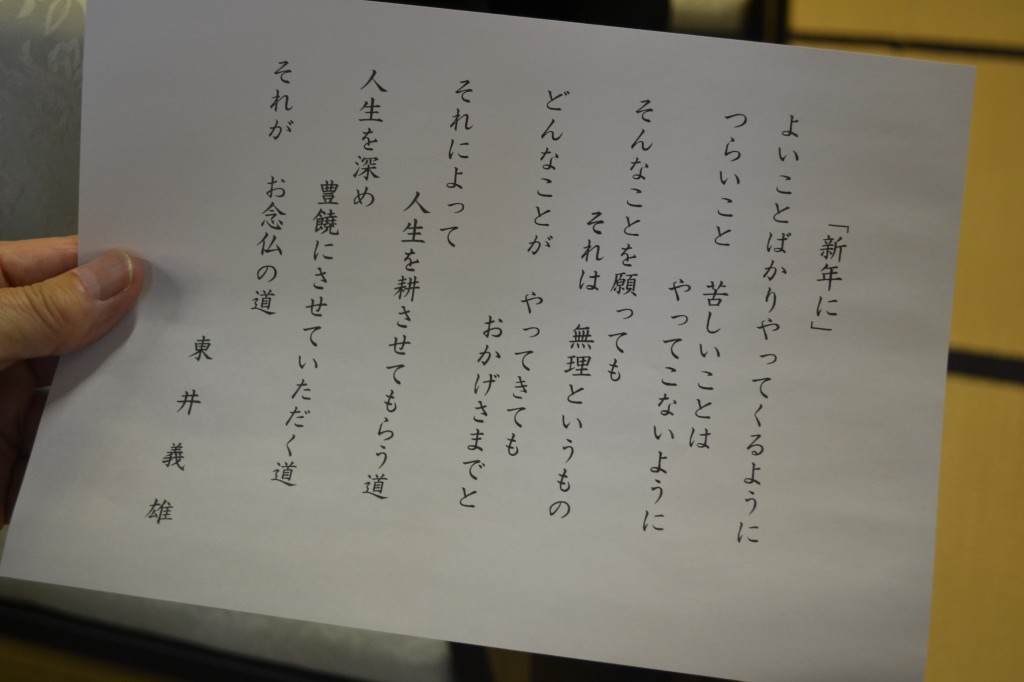 「新年に」
よいことばかりやってくるように
つらいこと　苦しいことは
やってこないように
そんなことを願っても
それは　無理というもの
どんなことが　やってきても
おかげさまでと
それによって
人生を耕させてもらう道
人生を深め
豊饒にさせていただく道
それが　お念仏の道
東井義雄